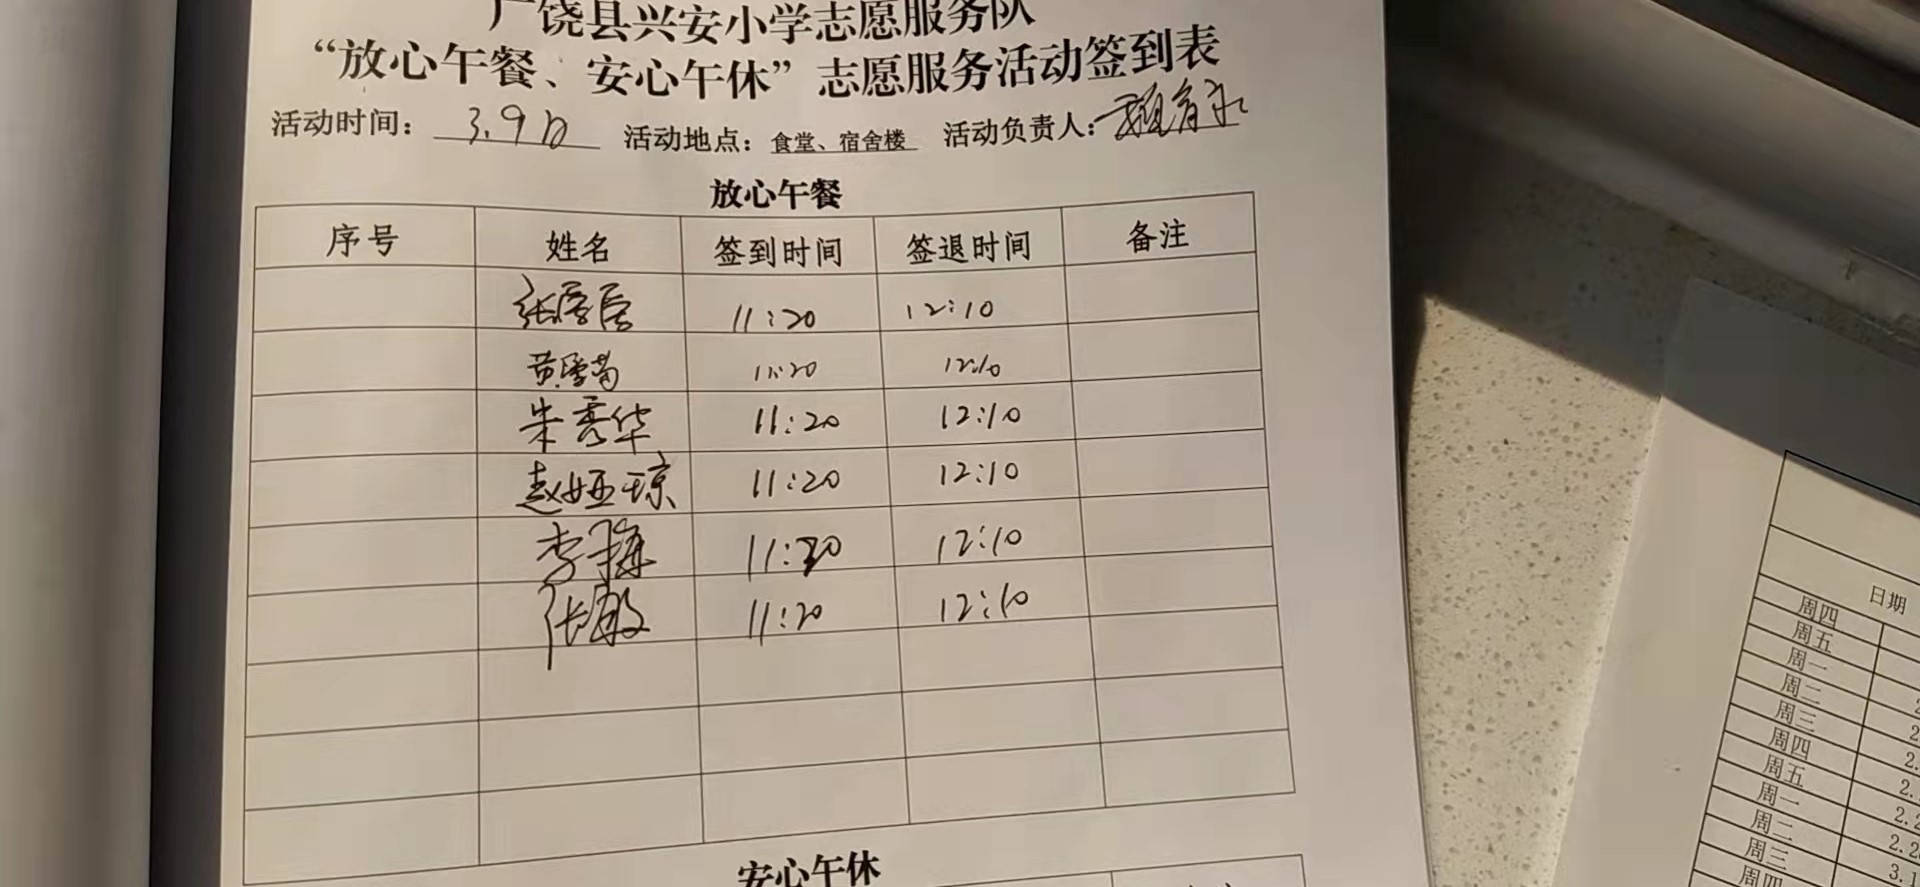 广饶县兴安小学志愿服务队
“放心午餐、安心午休”志愿服务活动签到表
活动时间: 3.9日 活动地点: 食堂、宿舍楼 活动负责人:
放心午餐
序号 姓名 签到时间 签退时间 备注
张 11:20 12:10
黄 11:20 12:10
朱秀华 11:20 12:10
赵娅琼 11:20 12:10
李 11:20 12:10
张敏 11:20 12:10
安心午休
日期
周四
周五
周一
周二
周三
周四
周五
周一
周二
周三 3.1
周四